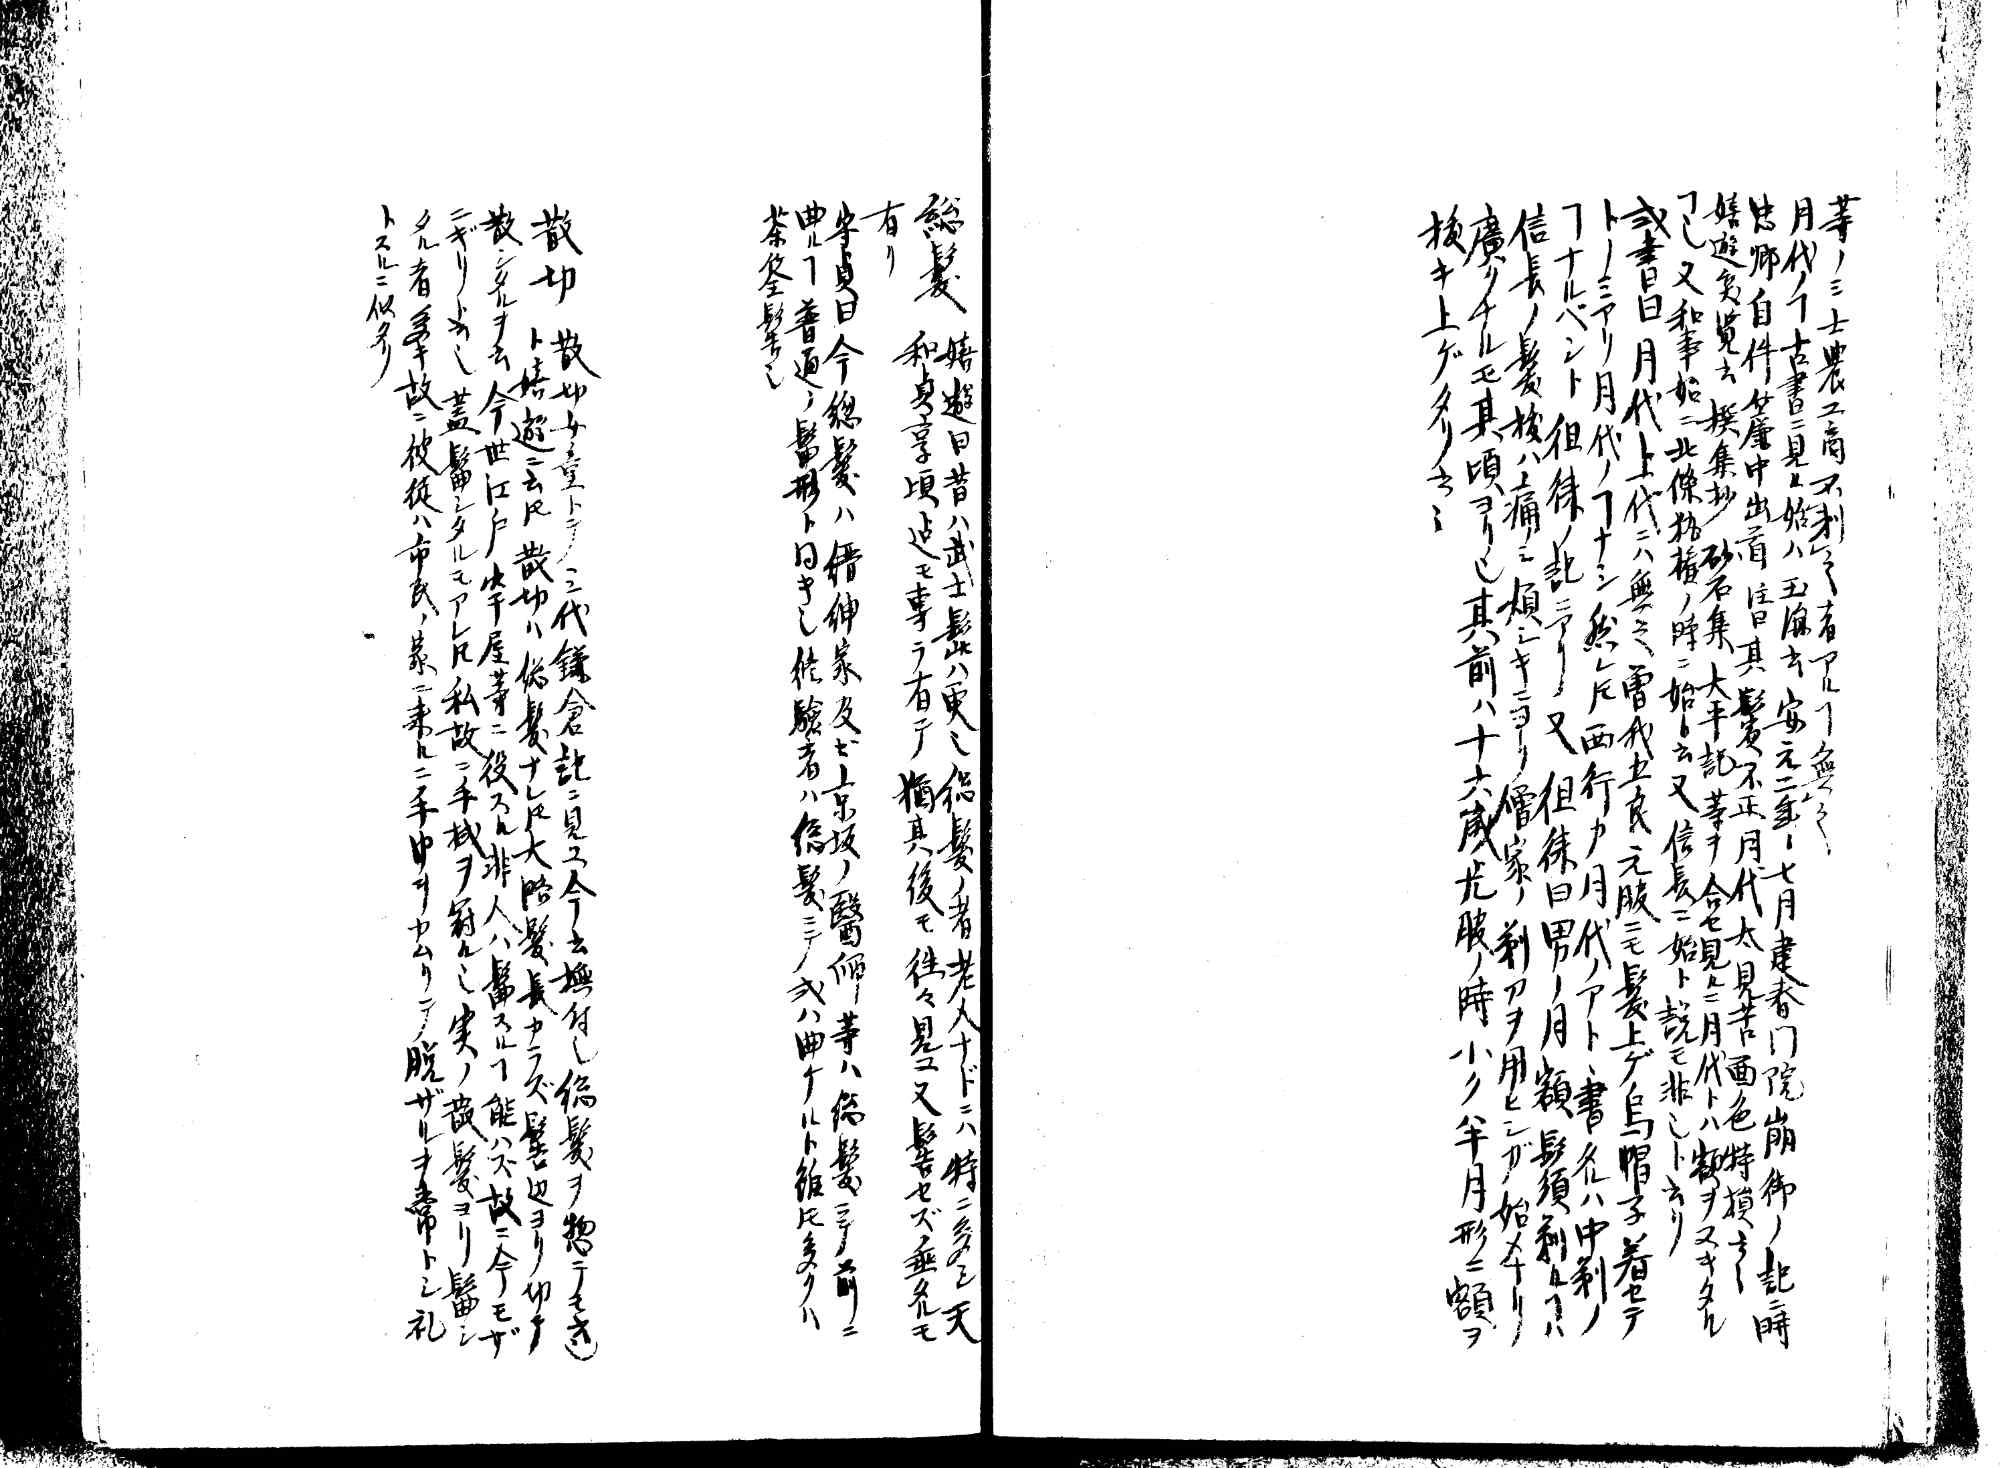 等ノミ士農工商不剃之者アルヿ無之
月代ノヿ古書ニ見ル始ハ玉海云安元二年七月建春門院崩御ノ記ニ時
忠卿自件簾中出首注曰其鬢不正月代太見苦面色特損云々
嬉遊笑覧云撰集抄砂石集大平記等ヲ合セ見ルニ月代トハ額ヲヌキタル
ヿ也又和事始ニ北條執権ノ時ニ始ト云又信長ニ始ト説モ非也ト云リ
或書曰月代上代ニハ無之曽我五良元服ニモ髪上ゲ烏帽子着セテ
トノミアリ月代ノヿナシ然レ𪜈西行カ月代ノアト書タルハ中剃ノ
ヿナルベシト徂徠ノ記ニアリ又徂徠曰男ノ月額髭須剃ルヿハ
信長ノ髪抜ハ痛ミ煩シキニヨリ僧家ノ剃刀ヲ用ヒシガ始メナリ
廣クナルモ其頃ヨリ也其前ハ十六歳元服ノ時小ク半月形ニ額ヲ
抜キ上ゲタリ云々
総髪 嬉遊曰昔ハ武士髭ハ更也総髪ノ者老人ナドニハ特ニ多シ天
和貞享頃迄モ専ラ有テ猶其後モ往々見ユ又髻セズ垂タルモ
有リ
守貞曰今総髪ハ縉紳家及ビ京坂ノ醫師等ハ総髪ニテ前ニ
曲ルヿ普通ノ髷形ト同キ也修驗者ハ総髪ニテ或ハ曲ケルト雖𪜈多クハ
茶筌髻也
散切 散切女童トテノ三代鎌倉記ニ見ユ今云撫付也総髪ヲ惣テモ云
ト嬉遊ニ云𪜈散切ハ総髪ナレ𪜈大略髪長カラズ髻辺ヨリ切テ
散シタルヲ云今世江戸牢屋等ニ役スル非人ハ髷スルヿ能ハズ故ニ今モザ
ニギリト云也蓋髷シタルモアレ𪜈私故ニ手拭ヲ冠ル也実ノ散髪ヨリ髷シ
タル者多キ故ニ彼徒ハ市民ノ家ニ来ルニ手巾ヲカムリテ脱ザルヲ常トシ礼
トスルニ似タリ